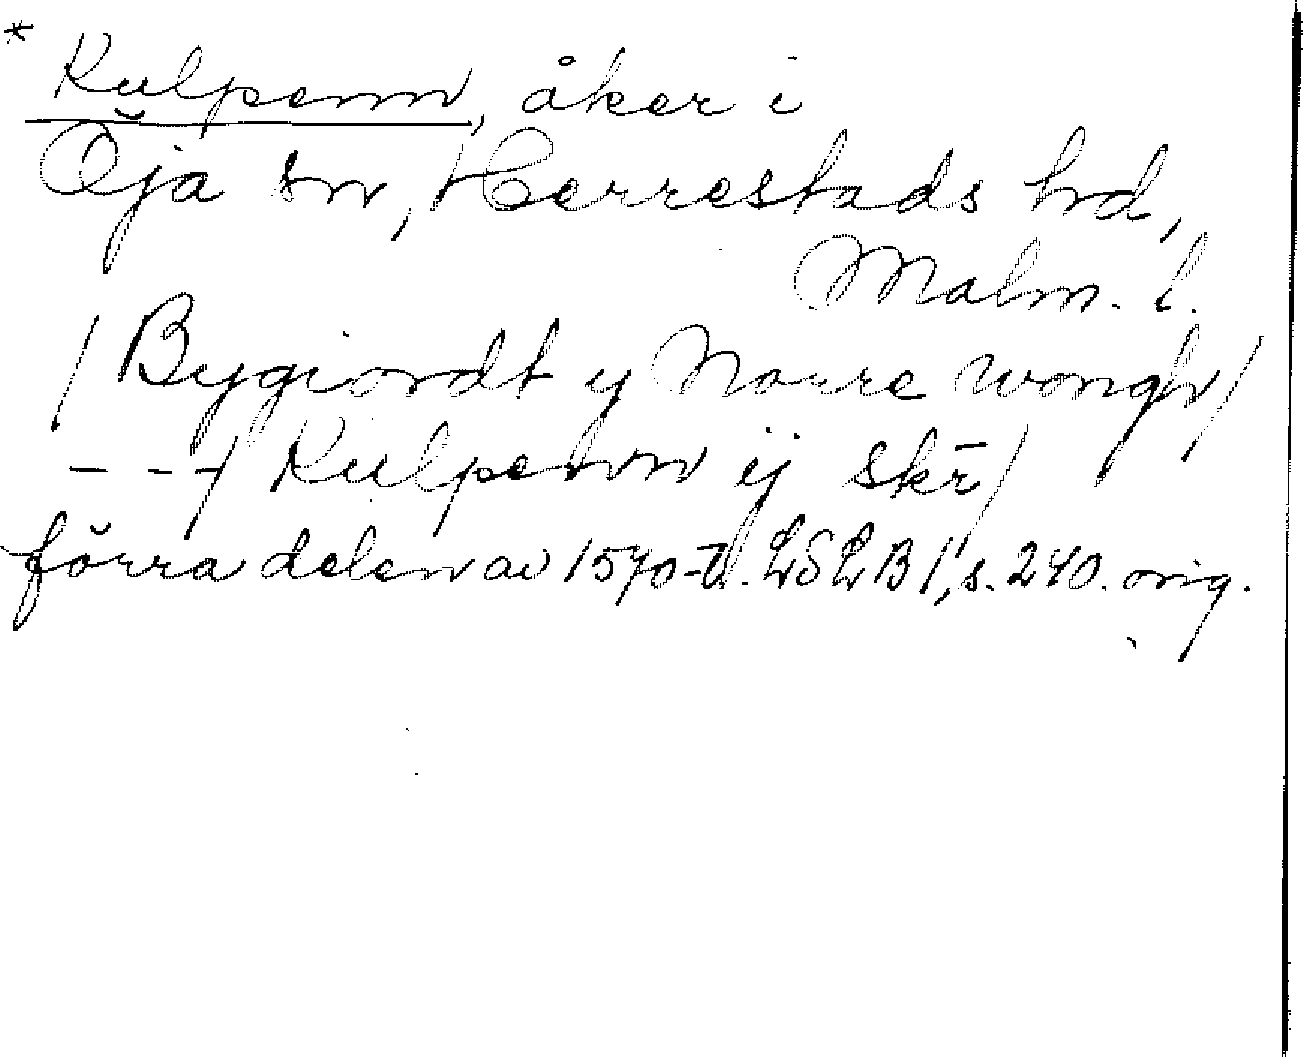 * Kulpenn, åker i
Öja sn, Herrestads hd,
Malm. l.
/ Bygiordt y Norre wongh /
- - - / Kulpenn ij skr̄ /
förra delen av 1570-t. LSLB 1, s. 240. orig.